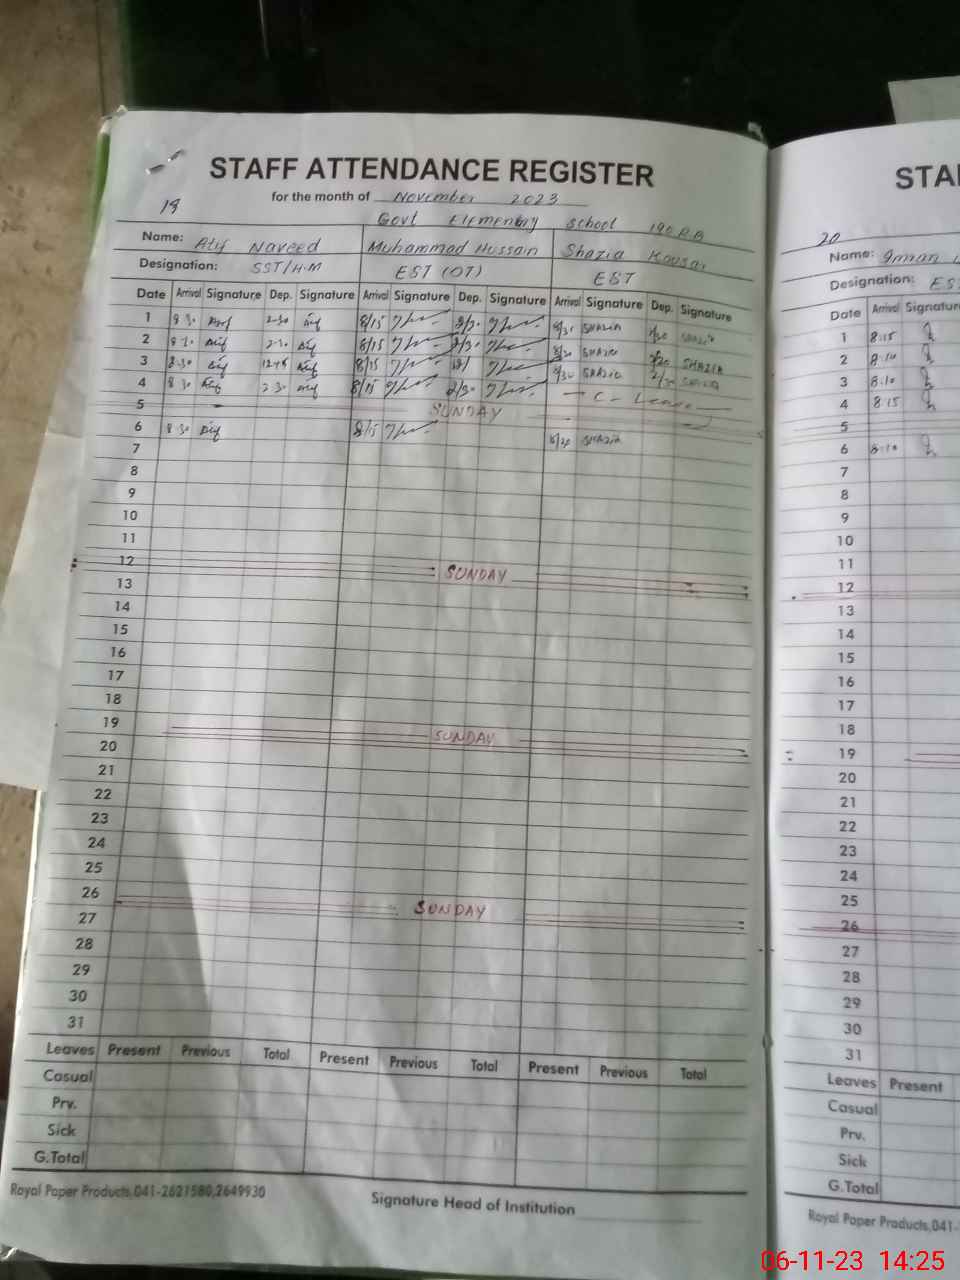 STAFF ATTENDANCE REGISTER
for the month of November 2023
18
Govt Elementary School 190 RB
Name: Atif Naveed Muhammad Hussain Shazia Kousar
Designation: SST/H.M EST (OT) EST
Date Arrival Signature Dep. Signature Arrival Signature Dep. Signature Arrival Signature Dep. Signature
1 8 30 Atif 2-30 Atif 8/15 SHAZIA SHAZIA
2 Atif 2-30 Atif 8/15 2/30 SHAZIA SHAZIA
3 8-30 Atif 12-45 Atif 8/15 8/30 SHAZIA SHAZIA
4 8 30 Atif 2 30 Atif 8/15 2/30 C- Leave
5 SUNDAY
6 8 30 Atif 8/15 SHAZIA
7
8
9
10
11
12 SUNDAY
13
14
15
16
17
18
19 SUNDAY
20
21
22
23
24
25
26 SUNDAY
27
28
29
30
31
Leaves Present Previous Total Present Previous Total Present Previous Total
Casual
Prv.
Sick
G.Total
Royal Paper Products,041-2621580,2649930 Signature Head of Institution
STA
20
Name:
Designation: ES
Date Arrival Signature
1 8:15
2 8:10
3 8:10
4 8:15
5
6 8:10
7
8
9
10
11
12
13
14
15
16
17
18
19
20
21
22
23
24
25
26
27
28
29
30
31
Leaves Present
Casual
Prv.
Sick
G.Total
Royal Paper Products,041-
06-11-23 14:25